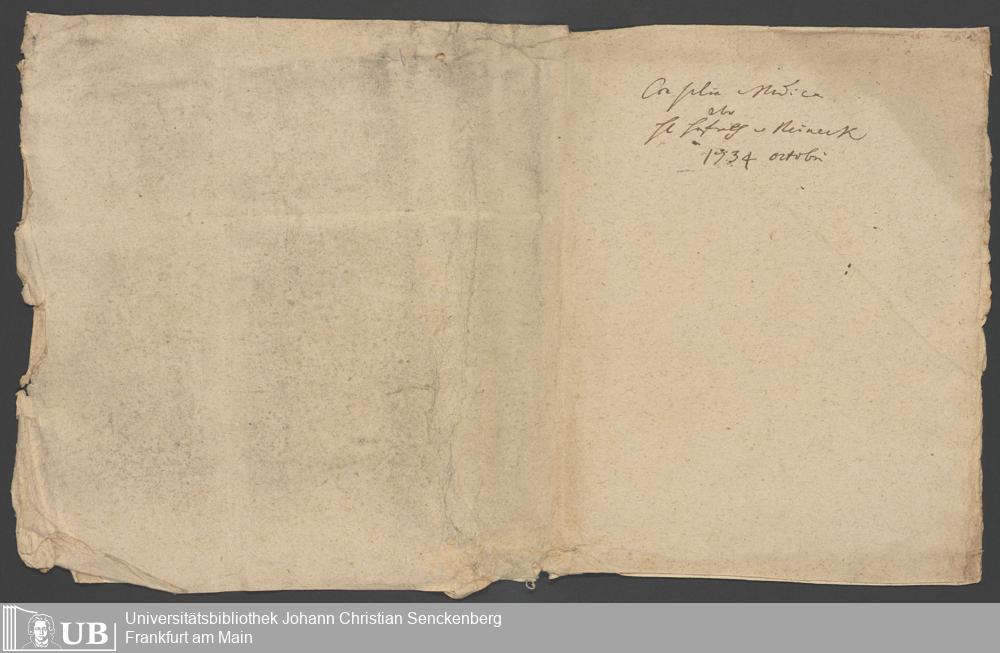 Consilia Medica
v Reineck
1734 octobr
UB
Universitätsbibliothek Johann Christian Senckenberg
Frankfurt am Main